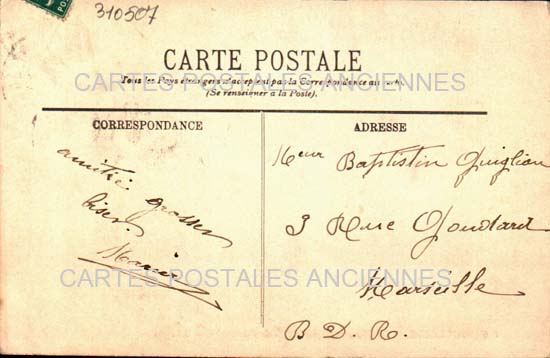 310507
CARTE POSTALE
Tous les Pays étrangers n'acceptent pas la Correspondance au recto.
(Se renseigner à la Poste).
CARTES POSTALES ANCIENNES
CORRESPONDANCE
amitié grosses
bises.
Marie
ADRESSE
Meur Baptistin Quiglion
3 Rue Goudard
Marseille
B. D. R.
CARTES POSTALES ANCIENNES